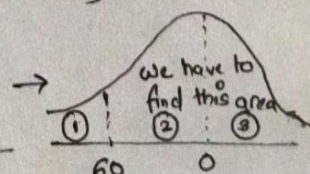 we have to
find this area
① ② ③
60 0